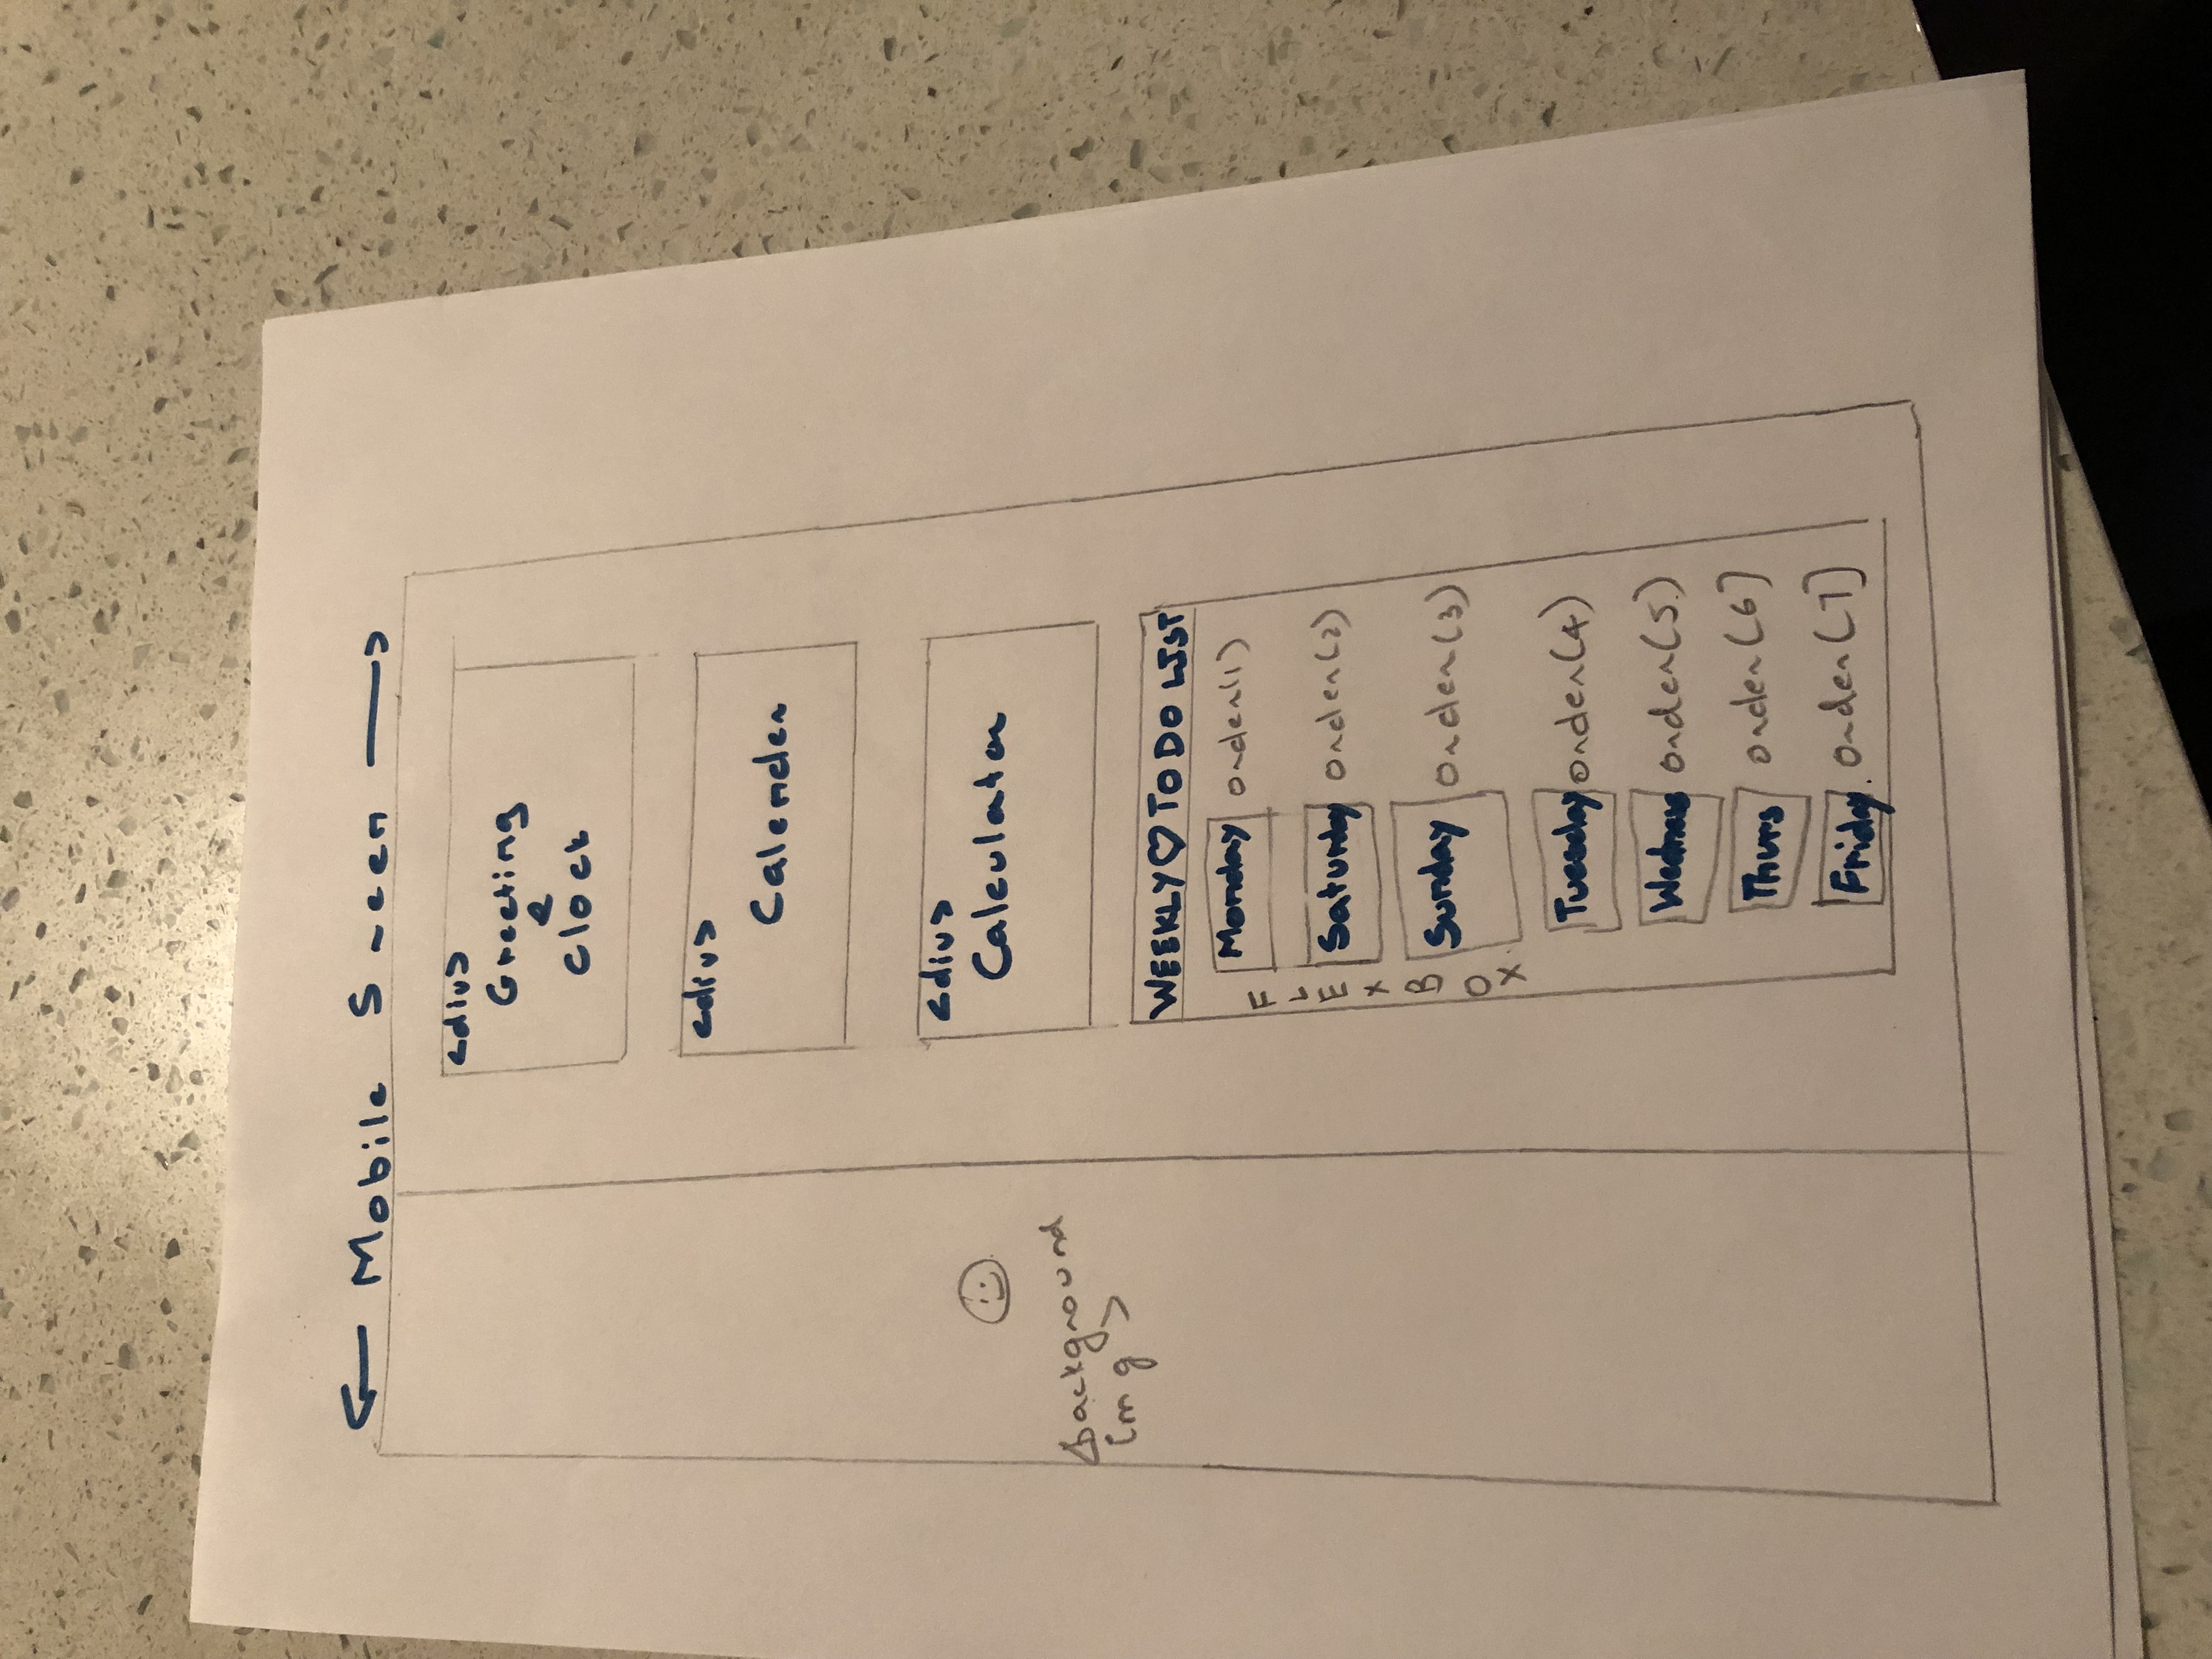 ← Mobile Screen →
<div>
Greeting
&
Clock
<div>
Calender
<div>
Calculator
<background
img>
WEEKLY ♡ TO DO LIST
FLEX BOX
Monday order(1)
Saturday order(2)
Sunday order(3)
Tuesday order(4)
Wednes order(5)
Thurs order(6)
Friday order(7)